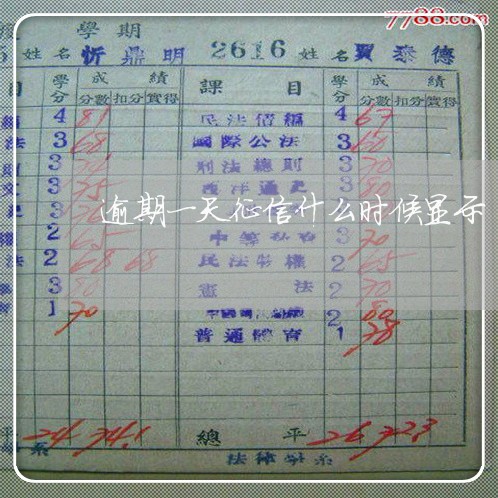 7788.com
度 學期
5 姓名 忻鼎明 2616 姓名 賈泰德
目 學分 成績 課目 學分 成績
分數 扣分 實得 分數 扣分 實得
編 4 81 民法債編 4 67
法 3 68 國際公法 3 60
則 3 刑法總則 3 70
文 3 75 西洋通史 3 80
史 3
逾期一天征信什么时候显示
2 65 中等 3 70
權 2 68 68 民法物權 2 65
法 3 80 憲法 2 70
育 1 70 2 80
普通體育 1 78
平 24 74.1 總平 26 72.3
系 法律學系